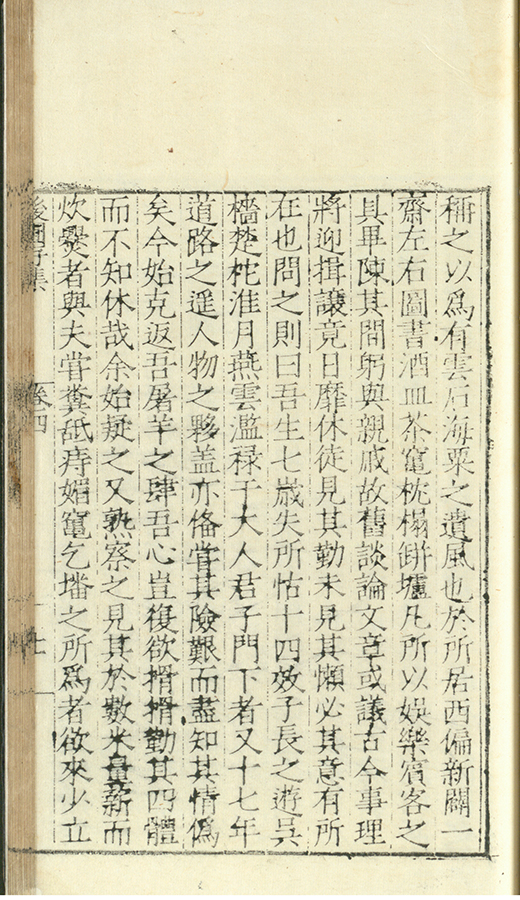 稱之以爲有雲石海粟之遺風也於所居西偏新闢一
齋左右圖書酒皿茶竃枕榻缾壚凡所以娛樂賓客之
具畢陳其間躬與親戚故舊談論文章或議古今事理
將迎揖讓竟日靡休徒見其勤未見其懶必其意有所
在也問之則曰吾生七歲失所怙十四效子長之遊吳
檣楚柁淮月燕雲濫祿于大人君子門下者又十七年
道路之遥人物之夥盖亦俻甞其險艱而盡知其情僞
矣今始克返吾屠羊之肆吾心豈復欲搰搰勤其四體
而不知休哉余始疑之又熟察之見其於數米量薪而
炊爨者與夫甞糞舐痔媚竃乞墦之所爲者欲來少立
後圃存集
卷四
七